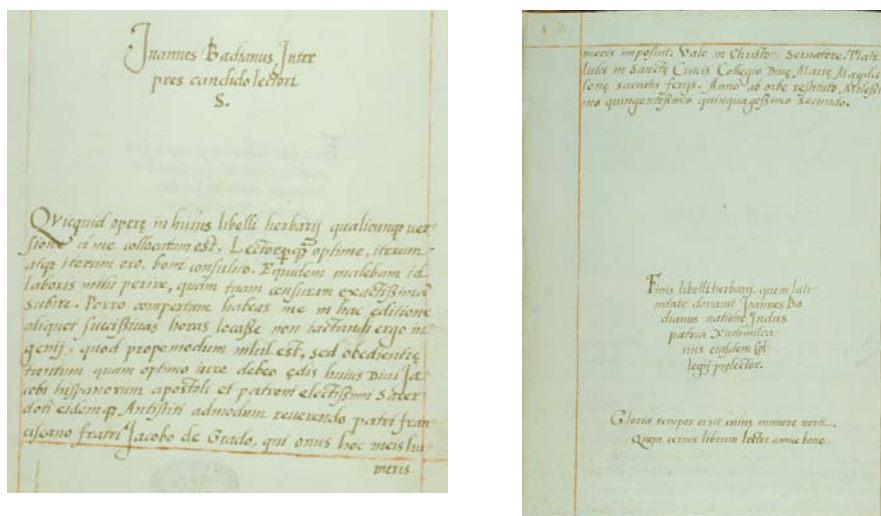 Joannes Badianus Inter
pres candido lectori
S.
Qvicquid operę in huius libelli herbarij qualicunqꝫ ver
sione a me collocatum est, Lector optime, iterum
atqꝫ iterum oro, boni consulito. Equidem malebam id
laboris mihi perire, quam tuam censuram exactißimā
subire. Porro compertum habeas me in hac editione
aliquot succißiuas horas locaße non iactandi ergo in
genij, quod propemodum nihil est, sed obedientię
tantum quam optimo iure debeo ędis huius Diui Ja
cobi hispanorum apostoli et patroni electißimi Sacer
doti eidemqꝫ Antistiti admodum reuerendo patri fran
ciscano fratri Jacobo de Grado, qui onus hoc meis hu
meris
meris imposuit. Vale in Christo Seruatore. Tlati
lulci in Sanctę Crucis Collegio Diuę Marię Magda
lenę sacratis ferijs. Anno ab orbe restituto Milleßi
mo quingenteßimo quinquageßimo Secundo.
Finis libelli herbarij, quem lati
nitate donauit Joannes Ba
dianus natione Jndus
patria Xuchimilca
nus eiusdem Col
legij prelector.
Gloria semper ei sit cuius munere uerti,
Quem cernis librum lector amice bone.